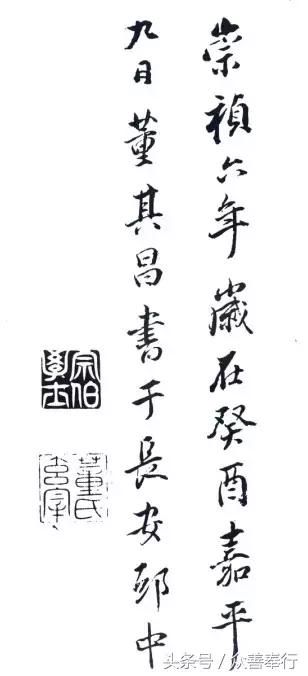 崇禎六年歲在癸酉嘉平
九日董其昌書于長安邸中
宗伯學士
董氏玄宰
头条号/众善奉行